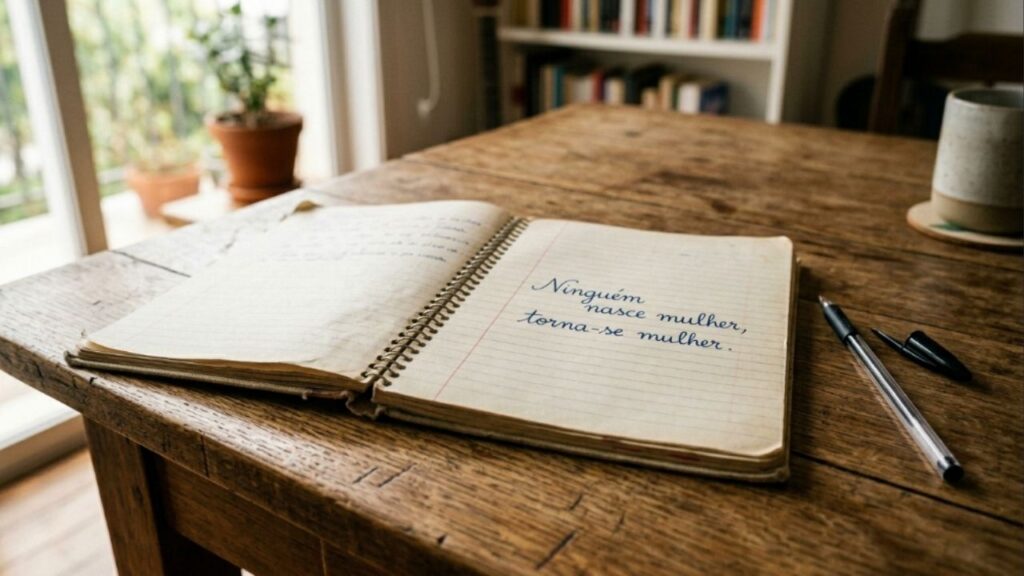 Ninguém
nasce mulher,
torna-se mulher.